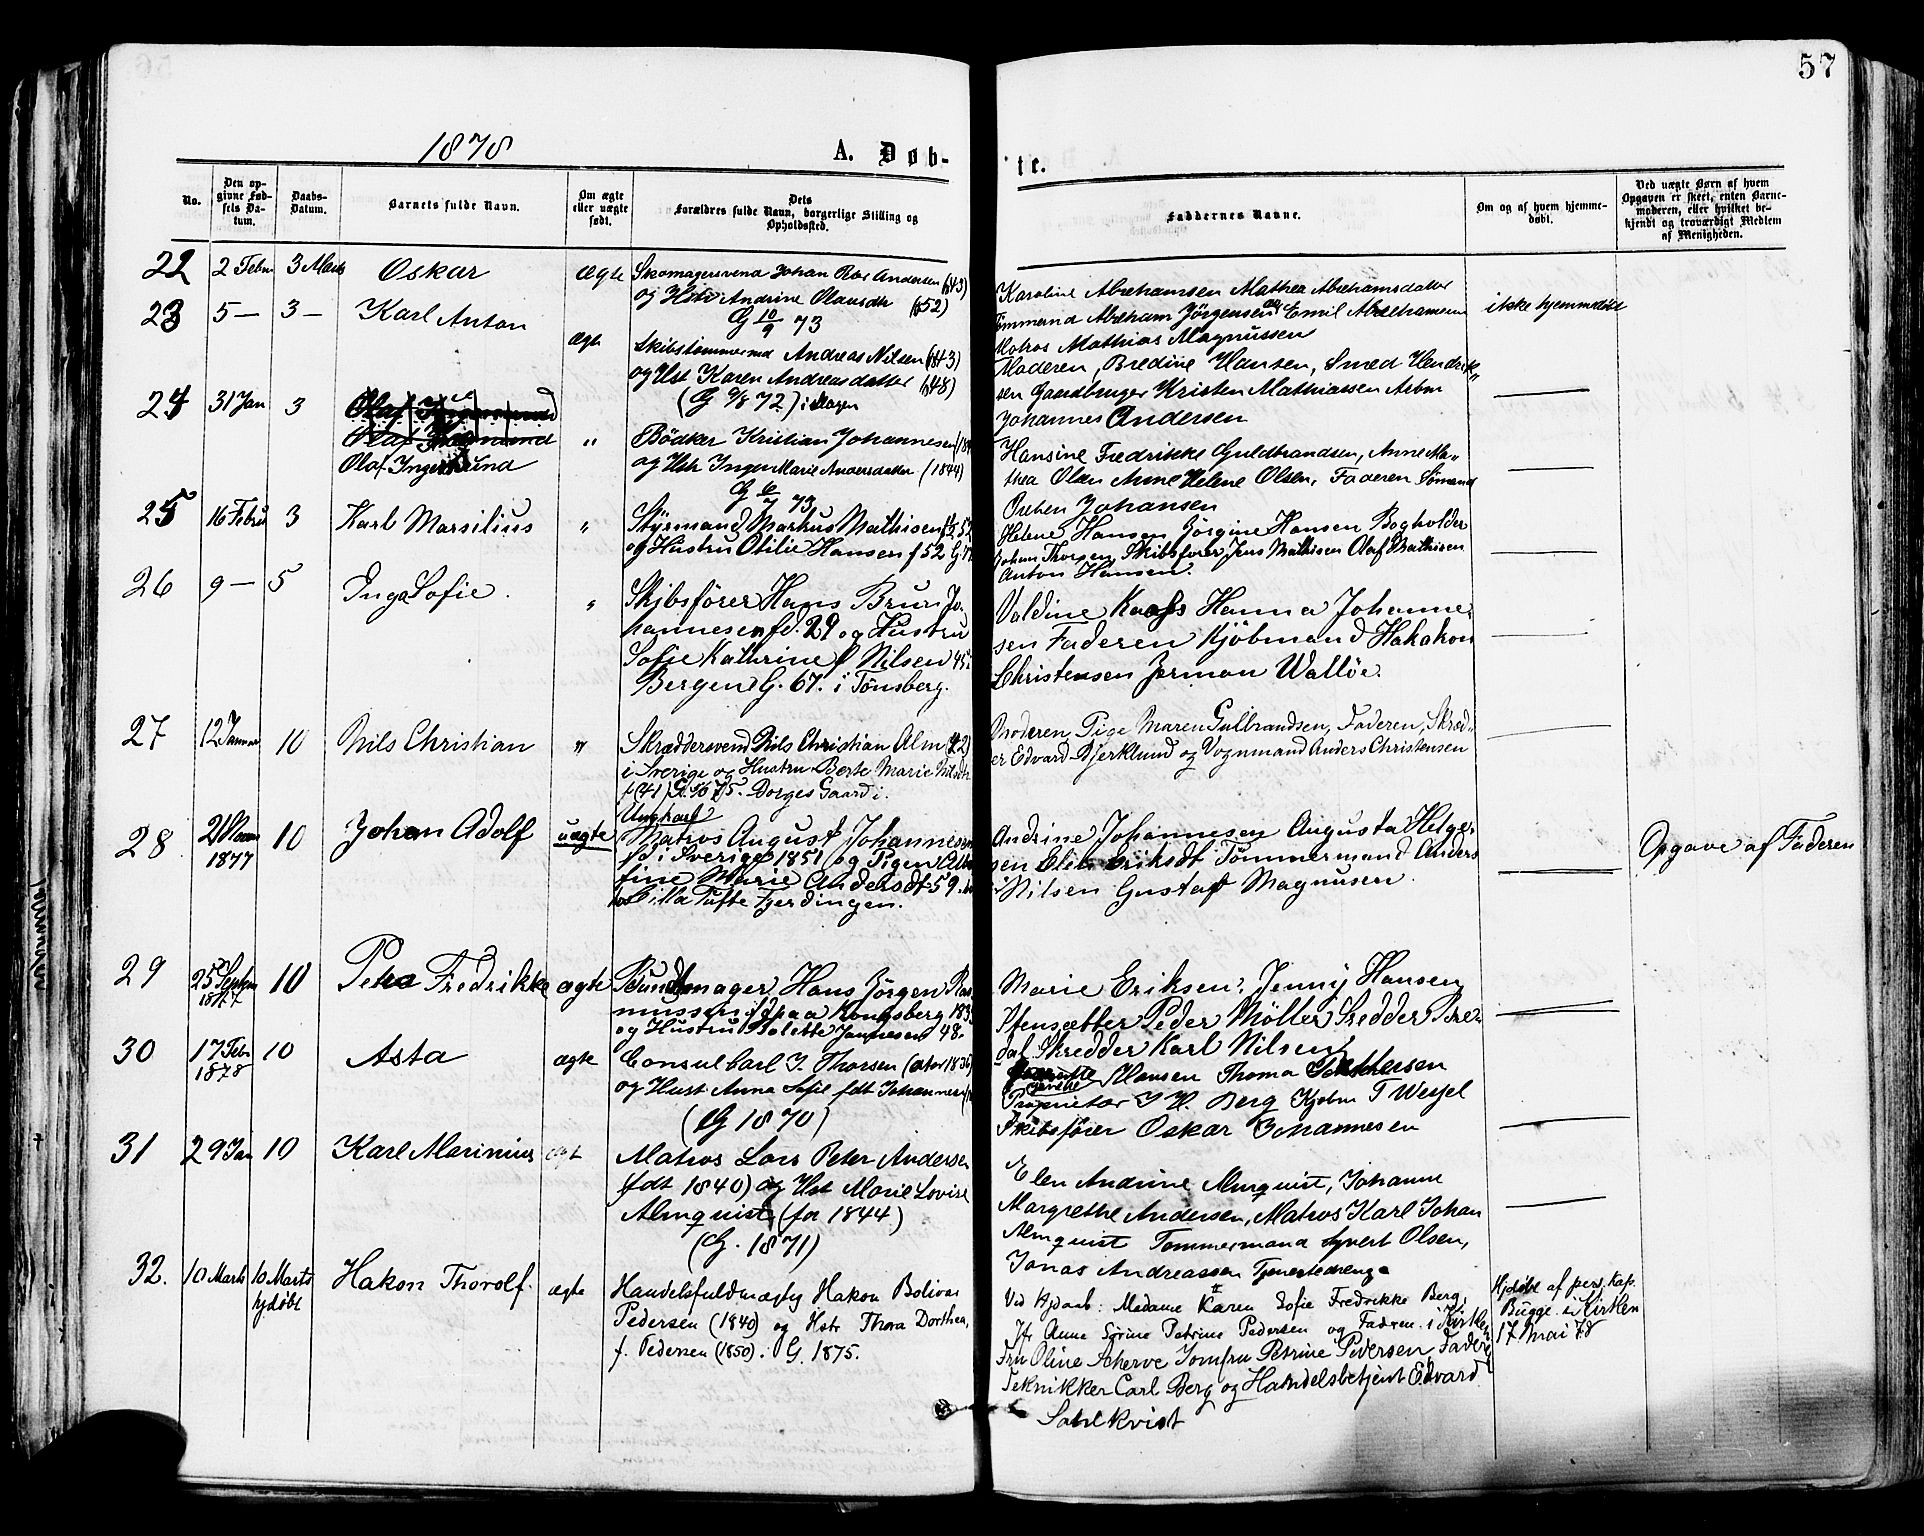 57
1878
A. Døb-
te.
No.
Den op-
givne Fød-
sels Da-
tum.
Daabs-
Datum.
Barnets fulde Navn.
Om ægte
eller uægte
født.
Dets
Forældres fulde Navn, borgerlige Stilling og
Opholdssted.
Faddernes Navne.
Om og af hvem hjemme-
døbt.
Ved uægte Børn af hvem
Opgaven er skeet, enten Barne-
moderen, eller hvilket be-
kjendt og troværdigt Medlem
af Menigheden.
22 2 Febr 3 Marts Oskar ægte
Skomagersvend Johan Andersen (43)
og Hstr Andrine Olausdtr (52)
G 10/9 73
Karoline Abrahamsen Mathea Abrahamsdatter
Tømmermand Abraham Jørgensen og Emil Abrahamsen
Matros Mathias Magnussen
ikke hjemmedøbt
23 5 — 3 — Karl Anton ægte
Skibstømmermd Andreas Nilsen (43)
og Hst Karen Andreasdatter (48)
(G 9/8 72) i Slagen
Moderen, Bredine Hansen, Smed Hendrik-
sen Gaardbruger Kristen Mathiassen Arbm
Johannes Andersen
24 31 Jan 3
Olaf Ingemund "
Bødker Kristian Johannesen
og Hstr Inger Marie Andersdatter (1844)
G 6/7 73
Hansine Fredrikke Guldbrandsen, Anne Ma-
thea Olsen Anne Helene Olsen, Faderen Sømand
Johansen
25 16 Febru 3 Karl Marsilius "
Styrmand Markus Mathisen f 52
og Hustru Otilie Hansen f 52 G.
Helene Hansen Jørgine Hansen Bogholder
Johan Thorsen Skibsfører Jens Mathisen Olaf Mathisen
Anton Hansen.
26 9 — 5 Inga Sofie. "
Skibsfører Hans Brun Jo-
hannesen fd. 29 og Hustru
Sofie Kathrine f Nilsen 45 i
Bergen G. 67. i Tønsberg.
Valdine Hanna Johanne-
sen Faderen Kjöbmand Hakakon
Christensen Jerman Walløe.
27 12 Januar 10 Nils Christian "
Skræddersvend Nils Christian Alm (42)
i Sverige og Hustru Berte Marie Nilsdt
f (41) G. 1675. Borges Gaard i.
Moderen, Pige Maren Gulbrandsen, Faderen, Skræd-
er Edvard Bjerklund og Vognmand Anders Christensen
28 1877 10 Johan Adolf uægte
Ungkarl
Matros August Johannesen
fd i Sverige 1851 og Pigen
fine Marie Andersdt 59
Tufte Fjerdingen.
Andrine Johannesen Augusta Helge-
sen Eriksdt Tømmermand Anders
Nilsen Gustaf Magnusen
Opgave af Faderen
29 25 Septem 1877 10 Petra Fredrikke ægte
Bundtmager Hans Jørgen Ras-
mussen fd paa Kongsberg
og Hustru Bolette Jannesen 48.
Marie Eriksen, Jenny Hansen
Stensætter Peder Møller Skredder Bre-
dal Skredder Karl Nilsen
30 17 Feb 1878 10 Asta ægte
Consul Carl J. Thorsen
og Hust Anna Sofie fdt Johannesen
(G 1870)
Hansen Thoma
Proprietær J H. Berg Kjøbm T Wessel
Skibsfører Oskar Johannesen
31 29 Jan 10 Karl Marinius ægt
Matros Lars Peter Andersen
(fdt 1840) og Hst Marie Lovise
Almquist (for 1844)
(G. 1871)
Elen Andrine Almquist, Johanne
Margrethe Andersen, Matros Karl Johan
Almquist Tømmermand Syvert Olsen,
Jonas Andreassen Tjenestedreng
32. 10 Marts 10 Marts hjdøbt Hakon Thorolf. ægte
Handelsfuldmægtig Hakon Bolivar
Pedersen (1840) og Hstr Thora Dorthea,
f. Pedersen (1850). G. 1875.
Ved Hjdaab: Madame Karen Sofie Fredrikke Berg,
Jfr Anne Sørine Petrine Pedersen og Fadren. i Kirken
Fru Oline Jomfru Petrine Pedersen, Faderen
Teknikker Carl Berg og Handelsbetjent Edvard
Sahlkvist
Hjdøbt af pers. Kap.
Bugge. i Kirken
17 mai 78